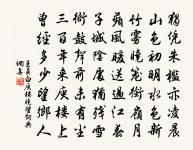 獨憑朱檻立凌晨
山色初明水色新
竹霧曉籠銜嶺月
蘋風暖送過江春
子城陰處猶殘雪
衙鼓聲前未有塵
三百年來庾樓上
曾經多少望鄉人
庾樓曉望詞典
網集